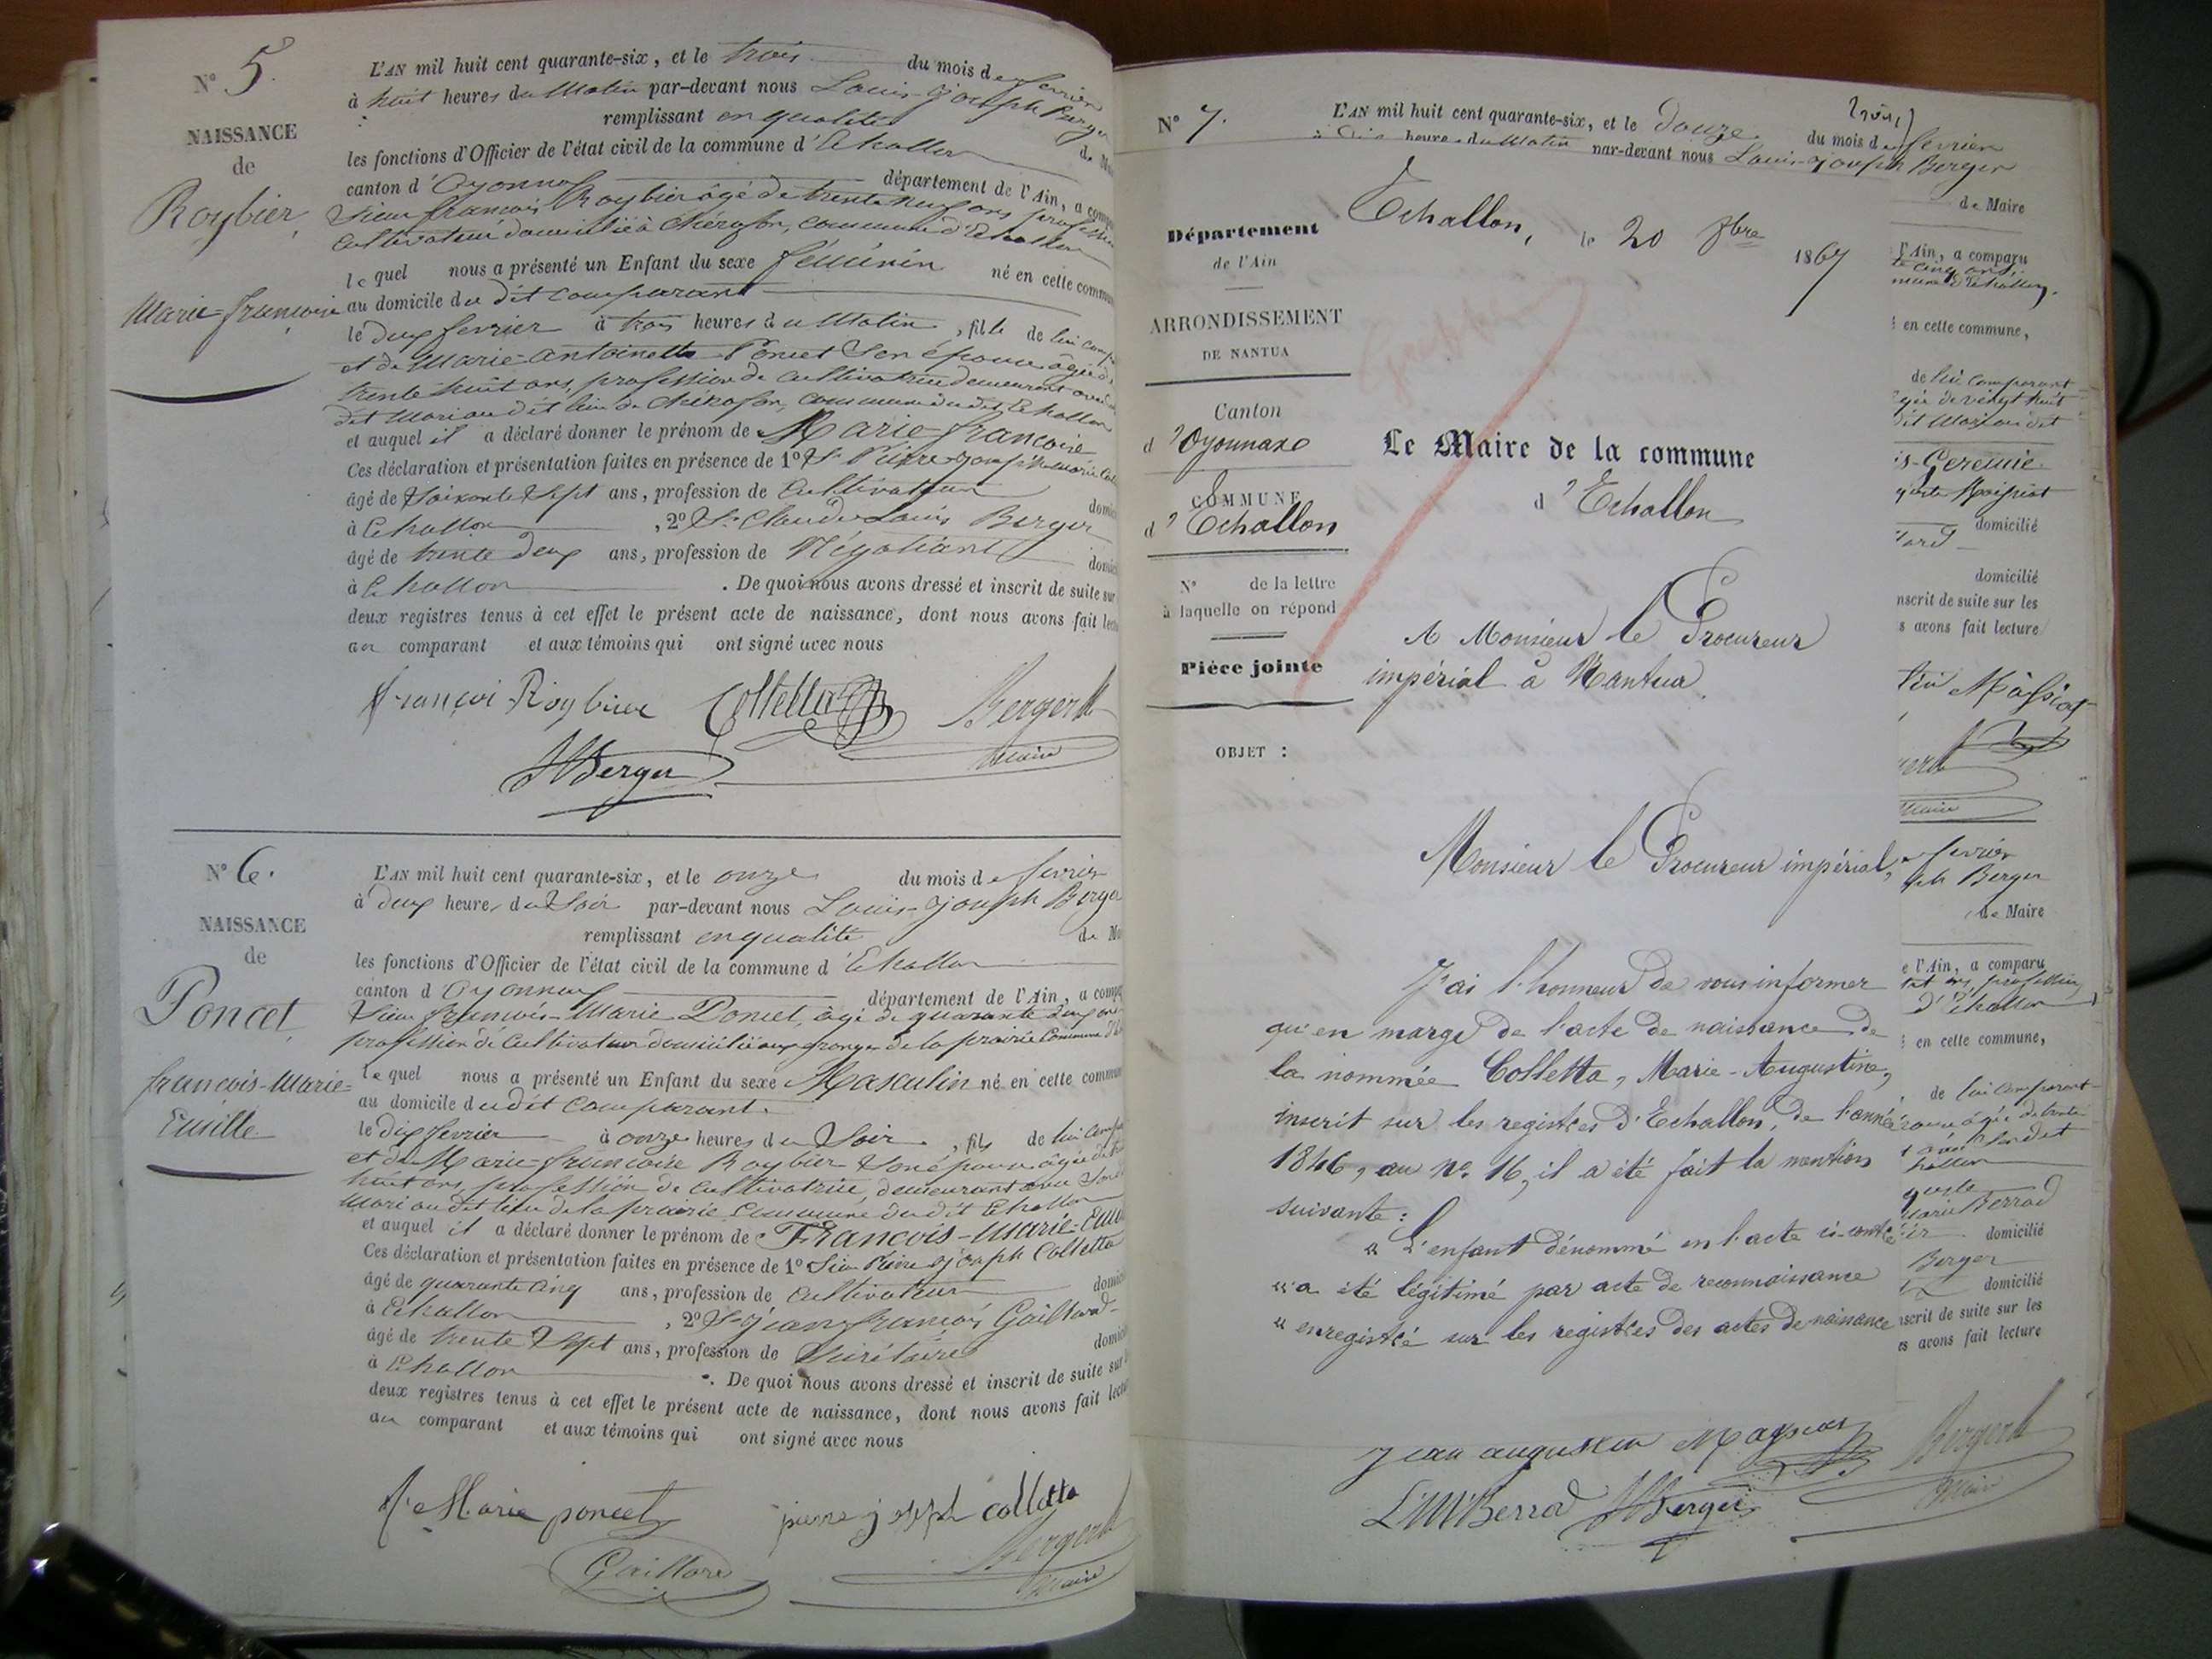 N° 5.
NAISSANCE
de
Roybier
Marie-françoise
L'AN mil huit cent quarante-six, et le trois du mois de fevrier
à huit heures du Matin par-devant nous Louis-joseph Berger
remplissant en qualité de
les fonctions d'Officier de l'état civil de la commune d'Echallon
canton d'Oyonnax département de l'Ain, a
Sieur françois Roybier âgé de trente neuf ans
Cultivateur domicilié à commune d'Echallon
lequel nous a présenté un Enfant du sexe féminin né en cette
au domicile du dit comparant
le deux fevrier à trois heures du Matin, fille de lui
et de Marie-antoinette Poncet Son épouse âgée de
trente huit ans, profession de cultivatrice demeurant
dit Mari au dit lieu de commune du dit Echallon
et auquel il a déclaré donner le prénom de Marie-françoise
Ces déclaration et présentation faites en présence de 1° Sr Pierre-joseph-marie
âgé de Soixante Sept ans, profession de Cultivateur
à Echallon, 2° Sr Claude Louis Berger
âgé de trente deux ans, profession de Négotiant
à Echallon. De quoi nous avons dressé et inscrit de suite sur
deux registres tenus à cet effet le présent acte de naissance, dont nous avons fait
au comparant et aux témoins qui ont signé avec nous
françoi Roybier Colletta Berger
Berger Maire
N° 6.
NAISSANCE
de
Poncet
françois-Marie-
Emille
L'AN mil huit cent quarante-six, et le onze du mois de fevrier
à deux heures du Soir par-devant nous Louis-joseph Berger
remplissant en qualité de
les fonctions d'Officier de l'état civil de la commune d'Echallon
canton d'Oyonnax département de l'Ain, a
Sieur françois-Marie Poncet, âgé de quarante deux ans
profession de Cultivateur domicilié aux granges de la prairie Commune
lequel nous a présenté un Enfant du sexe Masculin né en cette
au domicile du dit comparant.
le dix fevrier à onze heures du Soir, fils de lui
et de Marie-françoise Roybier Son épouse âgée de
huit ans, profession de cultivatrice, demeurant avec Son
Mari au dit lieu de la prairie Commune du dit Echallon
et auquel il a déclaré donner le prénom de François-Marie-
Ces déclaration et présentation faites en présence de 1° Sieur Pierre joseph Colletta
âgé de quarante cinq ans, profession de Cultivateur
à Echallon, 2° Sr jean françois Gaillard
âgé de trente Sept ans, profession de Sécrétaire
à Echallon. De quoi nous avons dressé et inscrit de suite sur
deux registres tenus à cet effet le présent acte de naissance, dont nous avons fait
au comparant et aux témoins qui ont signé avec nous
f. Marie poncet pierre joseph colletta
Gaillard Berger
Maire
N° 7.
L'AN mil huit cent quarante-six, et le douze du mois de fevrier
heures du Matin par-devant nous Louis-joseph Berger
de Maire
Département
de l'Ain
ARRONDISSEMENT
DE NANTUA
Canton
d'Oyonnax
COMMUNE
d'Echallon
N° de la lettre
à laquelle on répond
Pièce jointe
OBJET :
Echallon, le 20 1867
Le Maire de la commune
d'Echallon
A Monsieur le Procureur
impérial à Nantua.
Monsieur le Procureur impérial,
J'ai l'honneur de vous informer
qu'en marge de l'acte de naissance de
la nommée Colletta, Marie-Augustine,
inscrit sur les registres d'Echallon, de l'année
1846, au N° 16, il a été fait la mention
suivante :
« L'enfant dénommé en l'acte ci-contre
« a été légitimé par acte de reconnaissance
« enregistré sur les registres des actes de naissance
l'Ain, a comparu
en cette commune,
de lui comparant
de vingt huit
domicilié
domicilié
inscrit de suite sur les
avons fait lecture
fevrier
Berger
de Maire
l'Ain, a comparu
d'Echallon
en cette commune,
de lui comparant
Berrod
domicilié
Berger
domicilié
inscrit de suite sur les
avons fait lecture
jean augustin Berger
L M Berrod Berger Maire